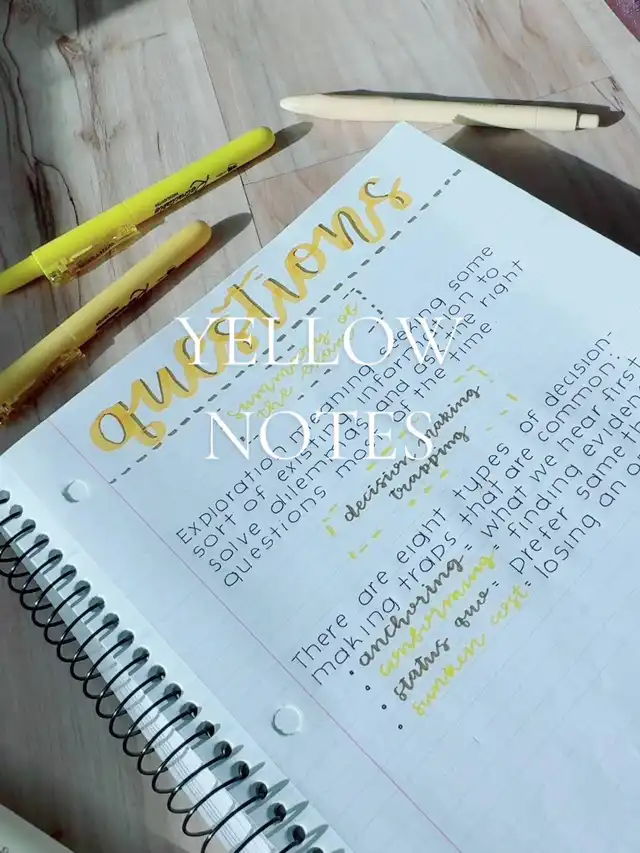 questions
YELLOW
NOTES
summary of
the exam
Exploration meaning seeking some
sort of existing information to
solve dilemmas and ask the right
questions most of the time
decision making
trapping
There are eight types of decision-
making traps that are common:
• anchoring = what we hear first
• confirming = finding eviden
• status quo = prefer same th
• sunken cost = losing an o